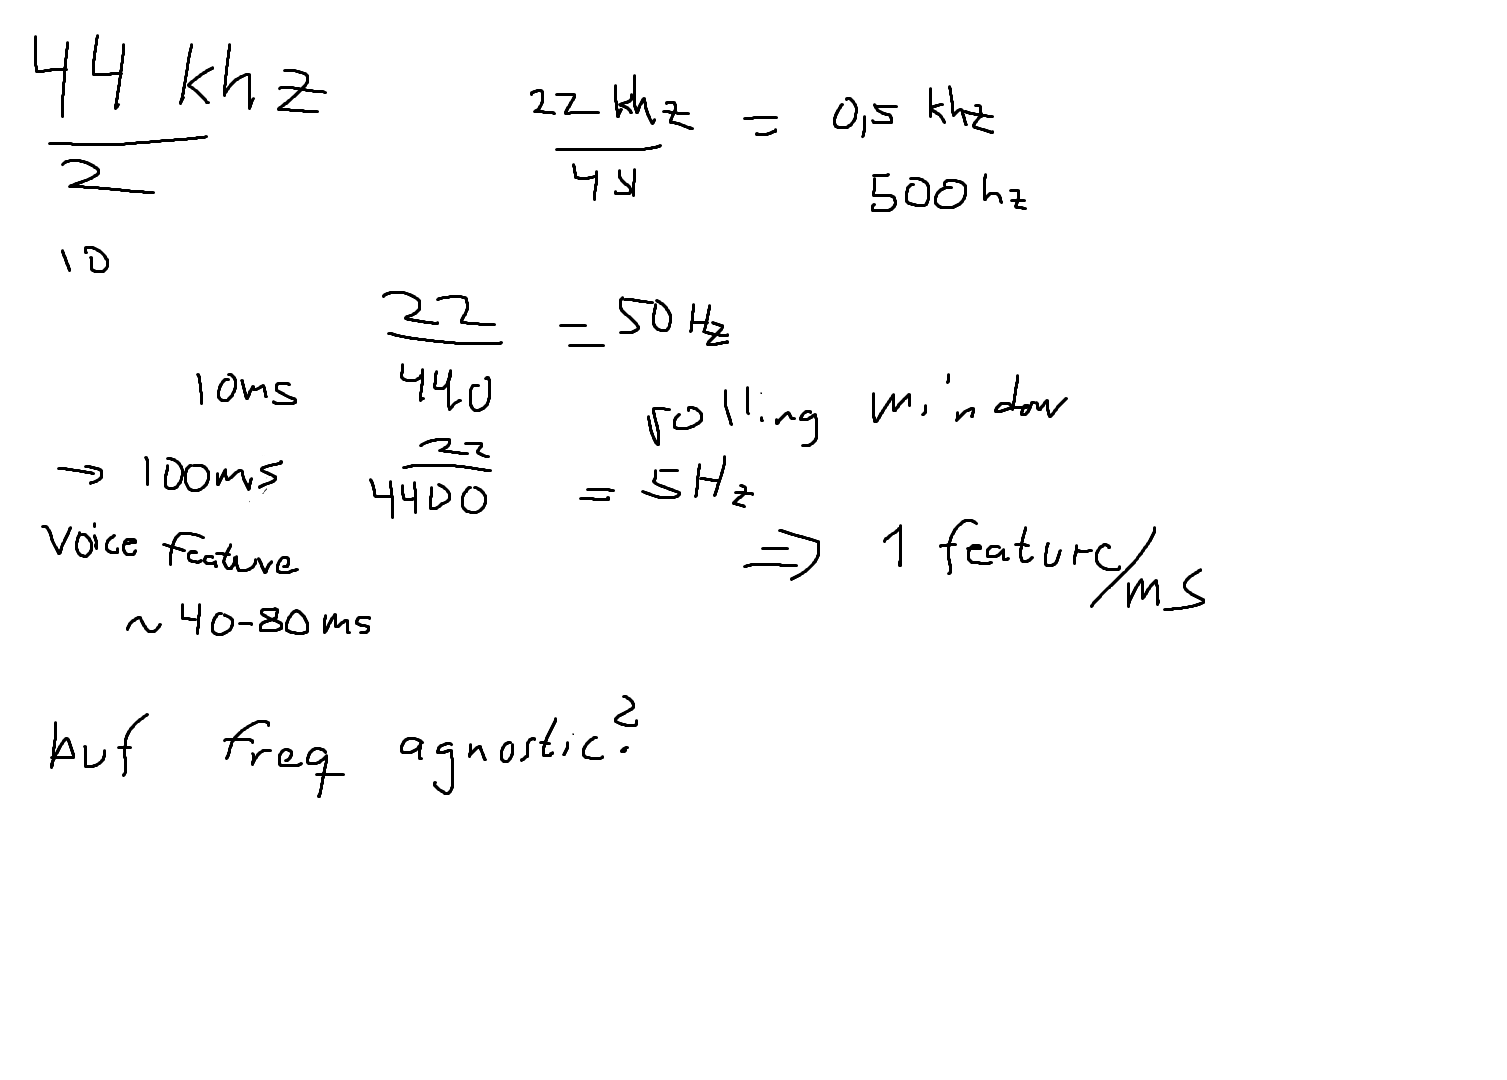 44 khz
2
22 khz = 0,5 khz
44
500hz
10
22 = 50 Hz
10ms 440
rolling window
22
→ 100ms 4400 = 5Hz
Voice feature
⇒ 1 feature/ms
~ 40-80 ms
buf freq agnostic?